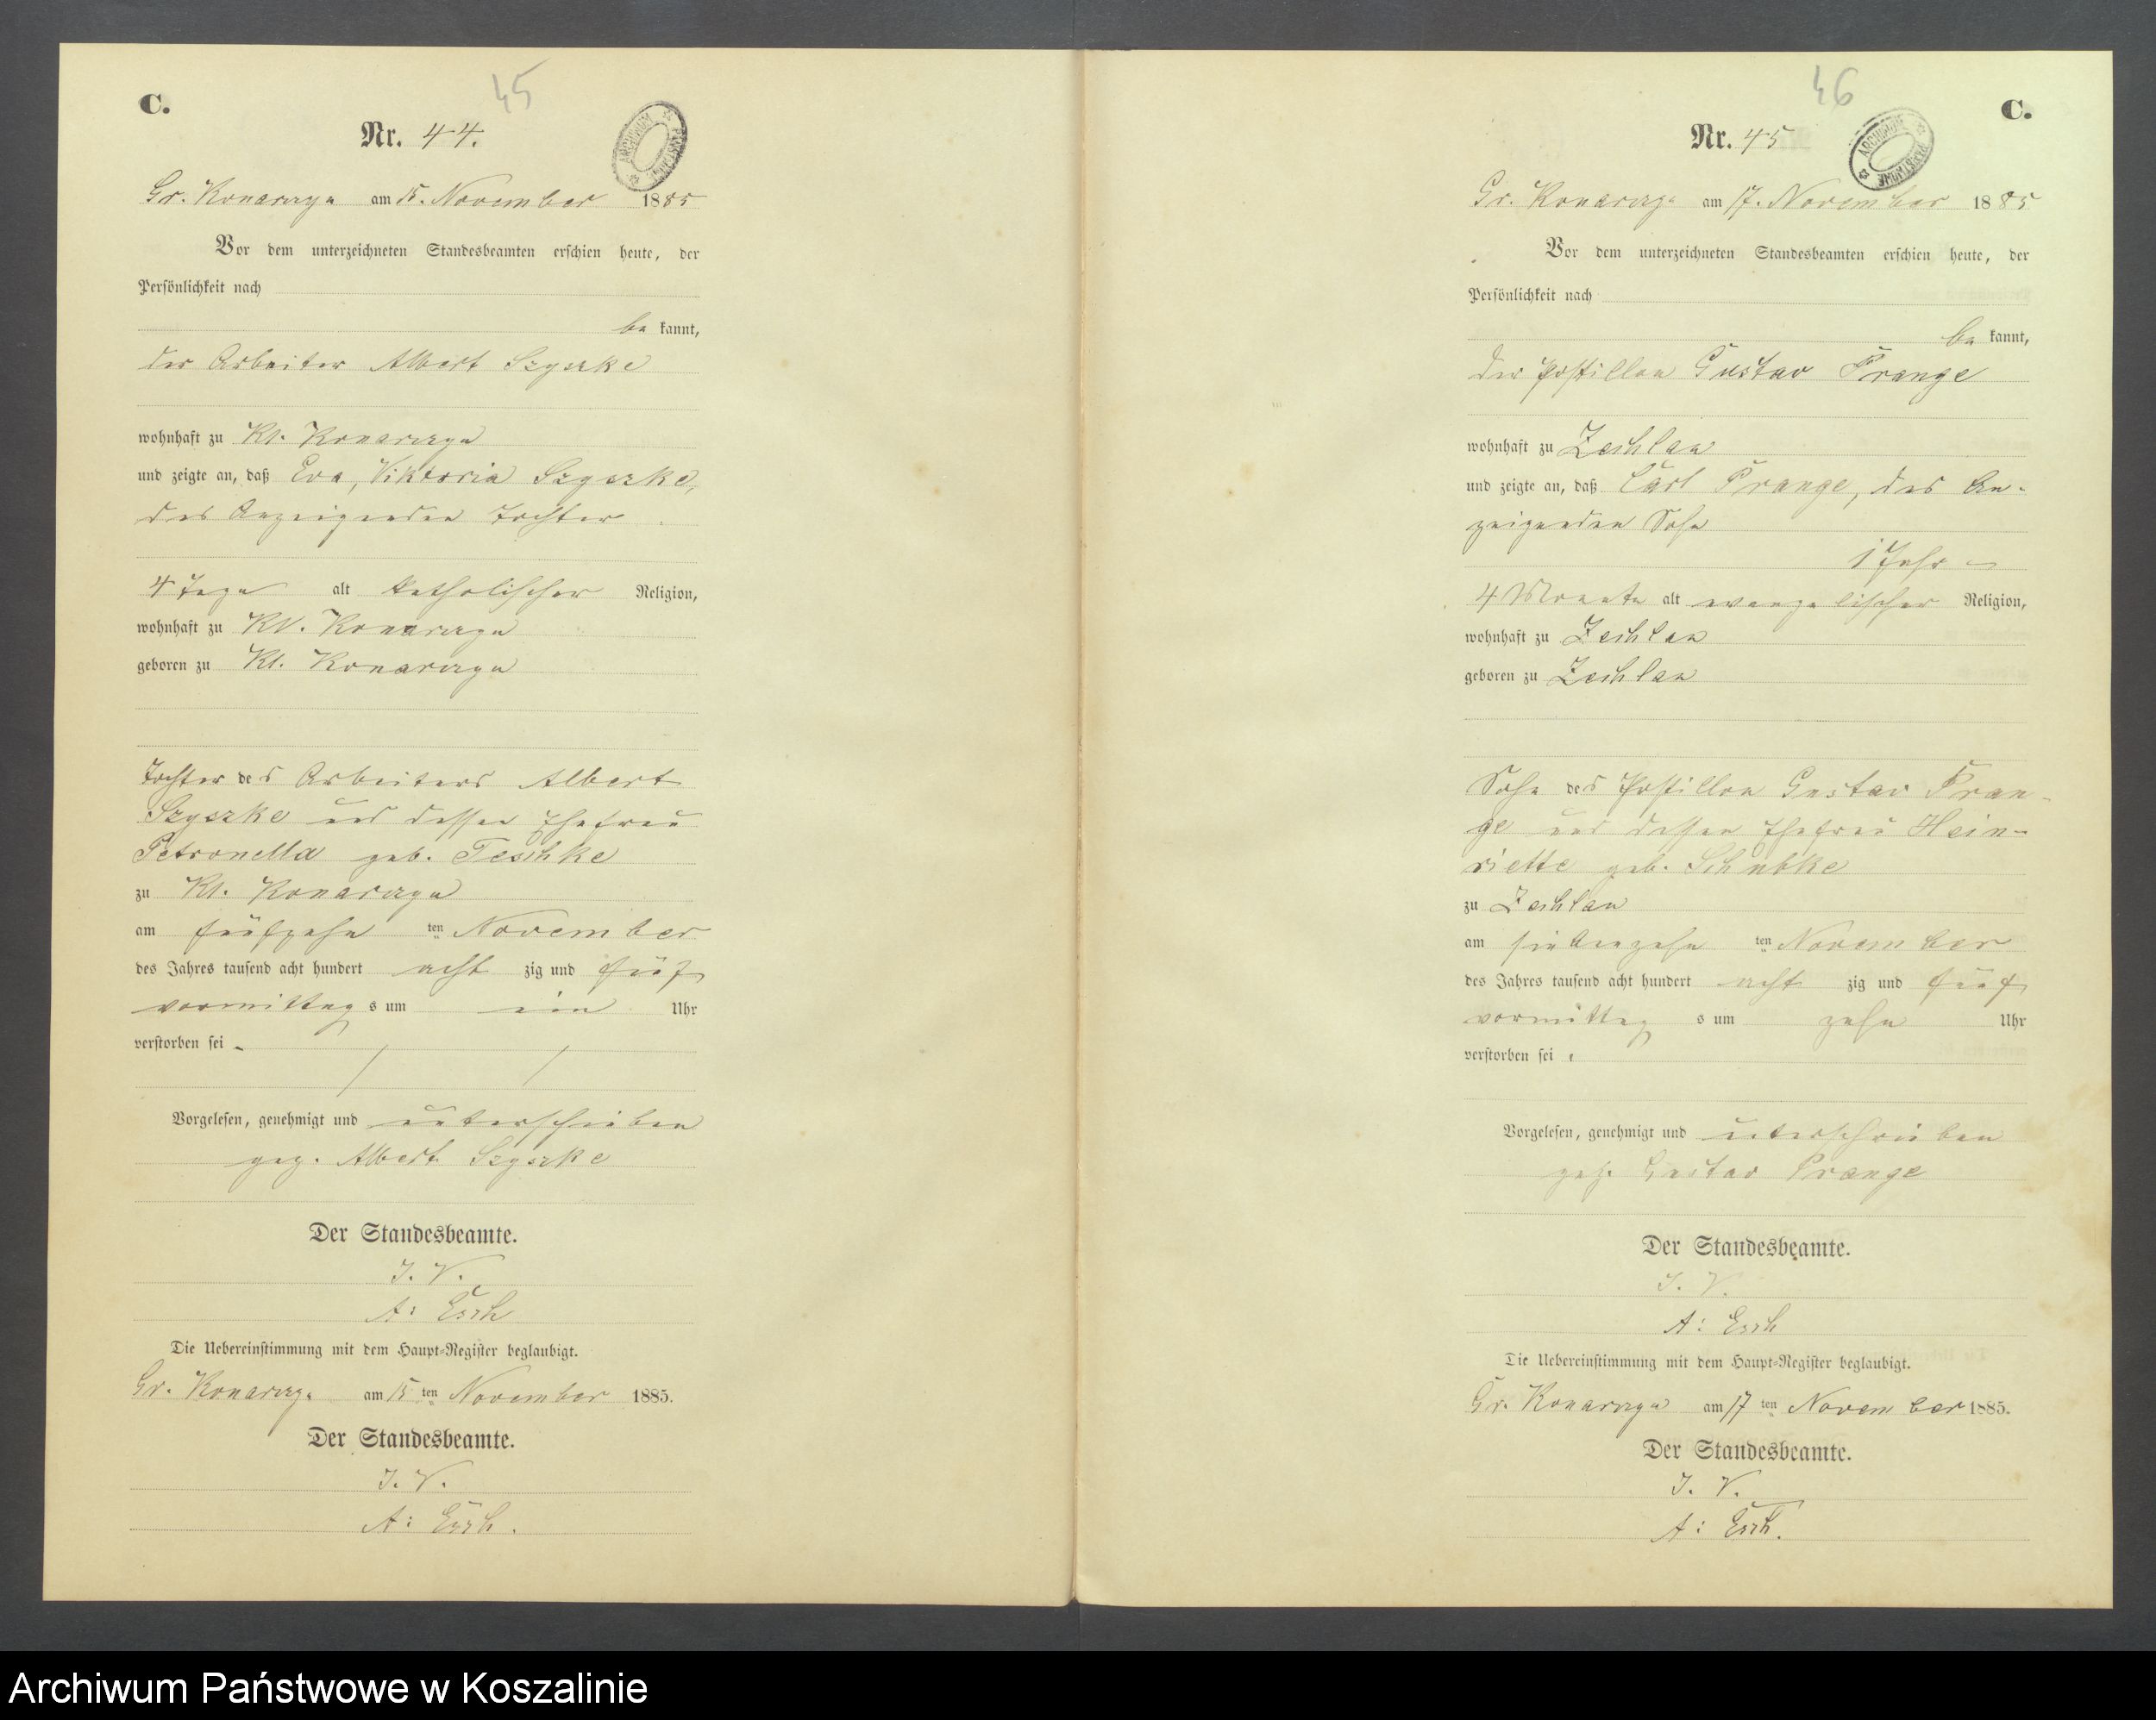 45
C.
Nr. 44.
ARCHIWUM PAŃSTWOWE
Gr. Konarczyn am 15. November 1885
Vor dem unterzeichneten Standesbeamten erschien heute, der
Persönlichkeit nach
be kannt,
der Arbeiter Albert Szyszke
wohnhaft zu Kl. Konarczyn
und zeigte an, daß Eva, Viktoria Szyszke,
des Anzeigenden Tochter
4 Tage alt katholischer Religion,
wohnhaft zu Kl. Konarczyn
geboren zu Kl. Konarczyn
Tochter des Arbeiters Albert
Szyszke und dessen Ehefrau
Petronella geb. Teschke
zu Kl. Konarczyn
am fünfzehn ten November
des Jahres tausend acht hundert acht zig und fünf
vormittag s um ein Uhr
verstorben sei
Vorgelesen, genehmigt und unterschrieben
gez. Albert Szyszke
Der Standesbeamte.
I. V.
A: Esch
Die Uebereinstimmung mit dem Haupt-Register beglaubigt.
Gr. Konarczyn am 15 ten November 1885.
Der Standesbeamte.
I. V.
A: Esch.
46
C.
Nr. 45
ARCHIWUM PAŃSTWOWE
Gr. Konarczyn am 17. November 1885
Vor dem unterzeichneten Standesbeamten erschien heute, der
Persönlichkeit nach
be kannt,
der Postillon Gustav Prange
wohnhaft zu Zechlau
und zeigte an, daß Carl Prange, des An-
zeigenden Sohn
1 Jahr
4 Monate alt evangelischer Religion,
wohnhaft zu Zechlau
geboren zu Zechlau
Sohn des Postillon Gustav Pran-
ge und dessen Ehefrau Hein-
riette geb. Schubke
zu Zechlau
am siebenzehn ten November
des Jahres tausend acht hundert acht zig und fünf
vormittag s um zehn Uhr
verstorben sei
Vorgelesen, genehmigt und unterschrieben
gez. Gustav Prange
Der Standesbeamte.
I. V.
A: Esch
Die Uebereinstimmung mit dem Haupt-Register beglaubigt.
Gr. Konarczyn am 17 ten November 1885.
Der Standesbeamte.
I. V.
A: Esch.
Archiwum Państwowe w Koszalinie